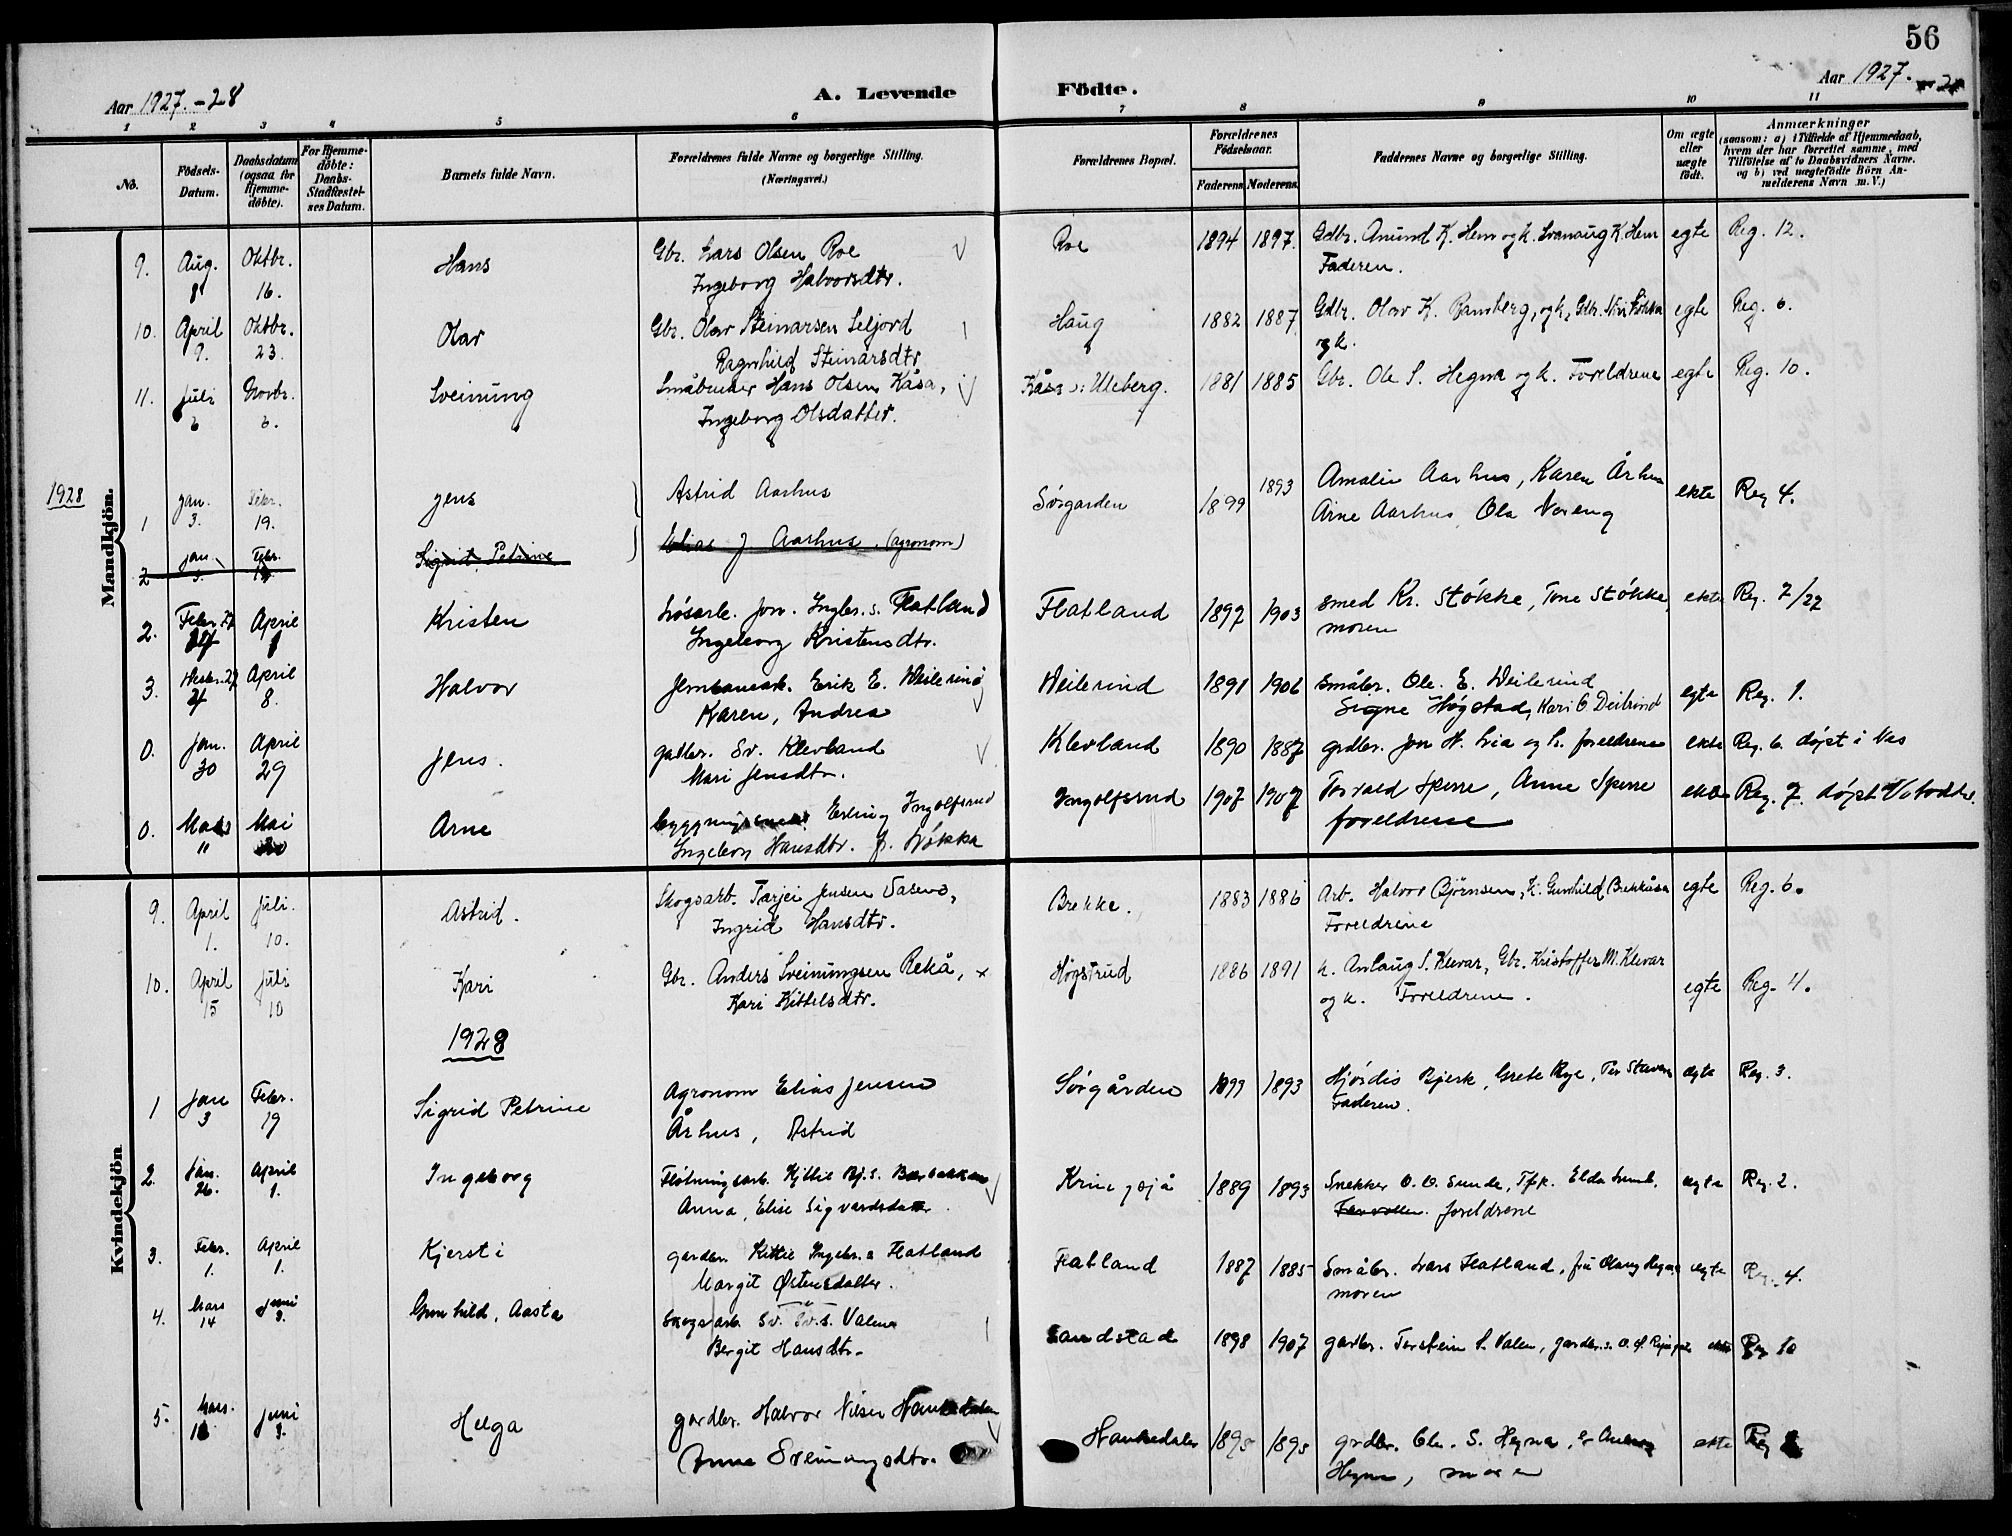 56
Aar 1927.-28
A. Levende
Födte.
Aar 1927.
1 2 3 4 5 6 7 8 9 10 11
No.
Födsels-Datum.
Daabsdatum (ogsaa for Hjemme-döbte).
For Hjemme-döbte: Daabs-Stadfæstel-ses Datum.
Barnets fulde Navn.
Forældrenes fulde Navne og borgerlige Stilling.
(Næringsvei.)
Forældrenes Bopæl.
Forældrenes Födselsaar.
Faderens. Moderens.
Faddernes Navne og borgerlige Stilling.
Om ægte eller uægte födt.
Anmærkninger
(saasom: a) i Tilfælde af Hjemmedaab,
hvem der har forrettet samme, med
Tilföielse af to Daabsvidners Navne.
og b) ved uægtefödte Börn An-
melderens Navn m. V.)
Mandkjön.
9. Aug. 8 Oktbr. 16. Hans Gbr. Lars Olsen Roe Roe 1894 1897. Gdbr. Anund K. Hem og k. Svanaug K. Hem egte Reg. 12.
Ingeborg Halvorsdtr. Faderen.
10. April 9. Oktbr. 23. Olav Gbr. Olav Steinarsen Seljord Haug 1882 1887 Gdbr. Olav K. Ramberg, og k, Gbr. egte Reg. 6.
Ragnhild Steinarsdtr og k.
11. Juli 6 Novbr. 6. Sveinung Småbruker Hans Olsen Kåsa, Kåsa u: Uleberg. 1881 1885 Gbr. Ole S. Hegna og k. Foreldrene egte Reg. 10.
Ingeborg Olsdatter.
1928
1 Jan. 3. Febr. 19. Jens Astrid Aarhus Sörgarden 1899 1893 Amalie Aarhus, Karen Århus ekte Reg 4.
Arne Aarhus, Ola Noreng
2 Jan. 3. Febr. 19. Sigrid Petrine Elias J. Aarhus. (agronom)
2. Febr. 27 April 1 Kristen Lösarb. Jon. Ingbr. s. Flatland Flatland 1897 1903 smed Kr. Støkke, Tone Støkke, ekte Reg. 7/27
Ingeborg Kristensdtr. moren
3. 4 April 8. Halvor Jernbanearb. Erik E. Weilerind Weilerind 1891 1906 småbr. Ole. E. Weilerind egte Reg. 1.
Karen, Andrea Signe Høgstad, Kari O Deilrind
0. Jan. 30 April 29 Jens. gadbr. Sv. Klevland Klevland 1890 1887 grdbr. Jon H. Lia og h. foreldrene ekte Reg. 6. døpt i Nes
Mari Jensdtr.
0. Mars 11 Mai Arne Erling Ingolfsrud Ingolfsrud 1907 1907 Torvald Sperre, Anne Sperre ekte Reg. 7. døpt
Ingeborg Hansdtr. f. Løkka foreldrene
Kvindekjön
9. April 1. Juli 10. Astrid. Skogsarb. Tarjei Jensen Vasend, Brekke. 1883 1886 Arb. Halvor Bjørnsen, k. Gunhild Brekkåsa egte Reg. 6.
Ingrid Hansdtr. Foreldrene
10. April 15 Juli 10 Kari Gbr. Anders Sveinungsen Rekå, Høgstrud 1886 1891 k. Anlaug S. Klevar, Gbr. Kristoffer M. Klevar egte Reg. 4.
Kari Kittelsdtr. og k. Foreldrene.
1928
1 Jan 3 Febr. 19 Sigrid Petrine Agronom Elias Jensen Sørgården 1899 1893 Hjørdis Bjerk, Grete Rye, Per Staven ægte Reg. 3.
Århus, Astrid Faderen.
2. Jan. 26. April 1. Ingeborg Fløtningsarb. Kittil Bj. s. Barbakken Kringsjå 1889 1893 Snekker O. O. Sunde, Tfk. Elda Lund. ægte Reg. 2.
Anna, Elise Sigvardsdatter foreldrene
3. Febr. 1. April 1. Kjersti gardbr. Kittil Ingebr. s Flatland Flatland 1887 1885 Småbr. Lars Flatland, fru Olaug Hegna ægte Reg. 4.
Margit Østensdatter. moren
4. Mars 14 Juni 3. Gunhild, Aasta Skogsarb. Sv. Sv. s. Valen Sandstad 1898 1907 gardbr. Torstein S. Valen, gardbr. s. O. ekte Reg 10
Bergit Hansdtr.
5. Mars. Juni 3. Helga gardbr. Halvor Nilsen Haukedalen Haukedalen 1895 1895 grdbr. Ole. S. Hegna, ekte Reg
Anne Sveinungsdtr. Hegna, moren